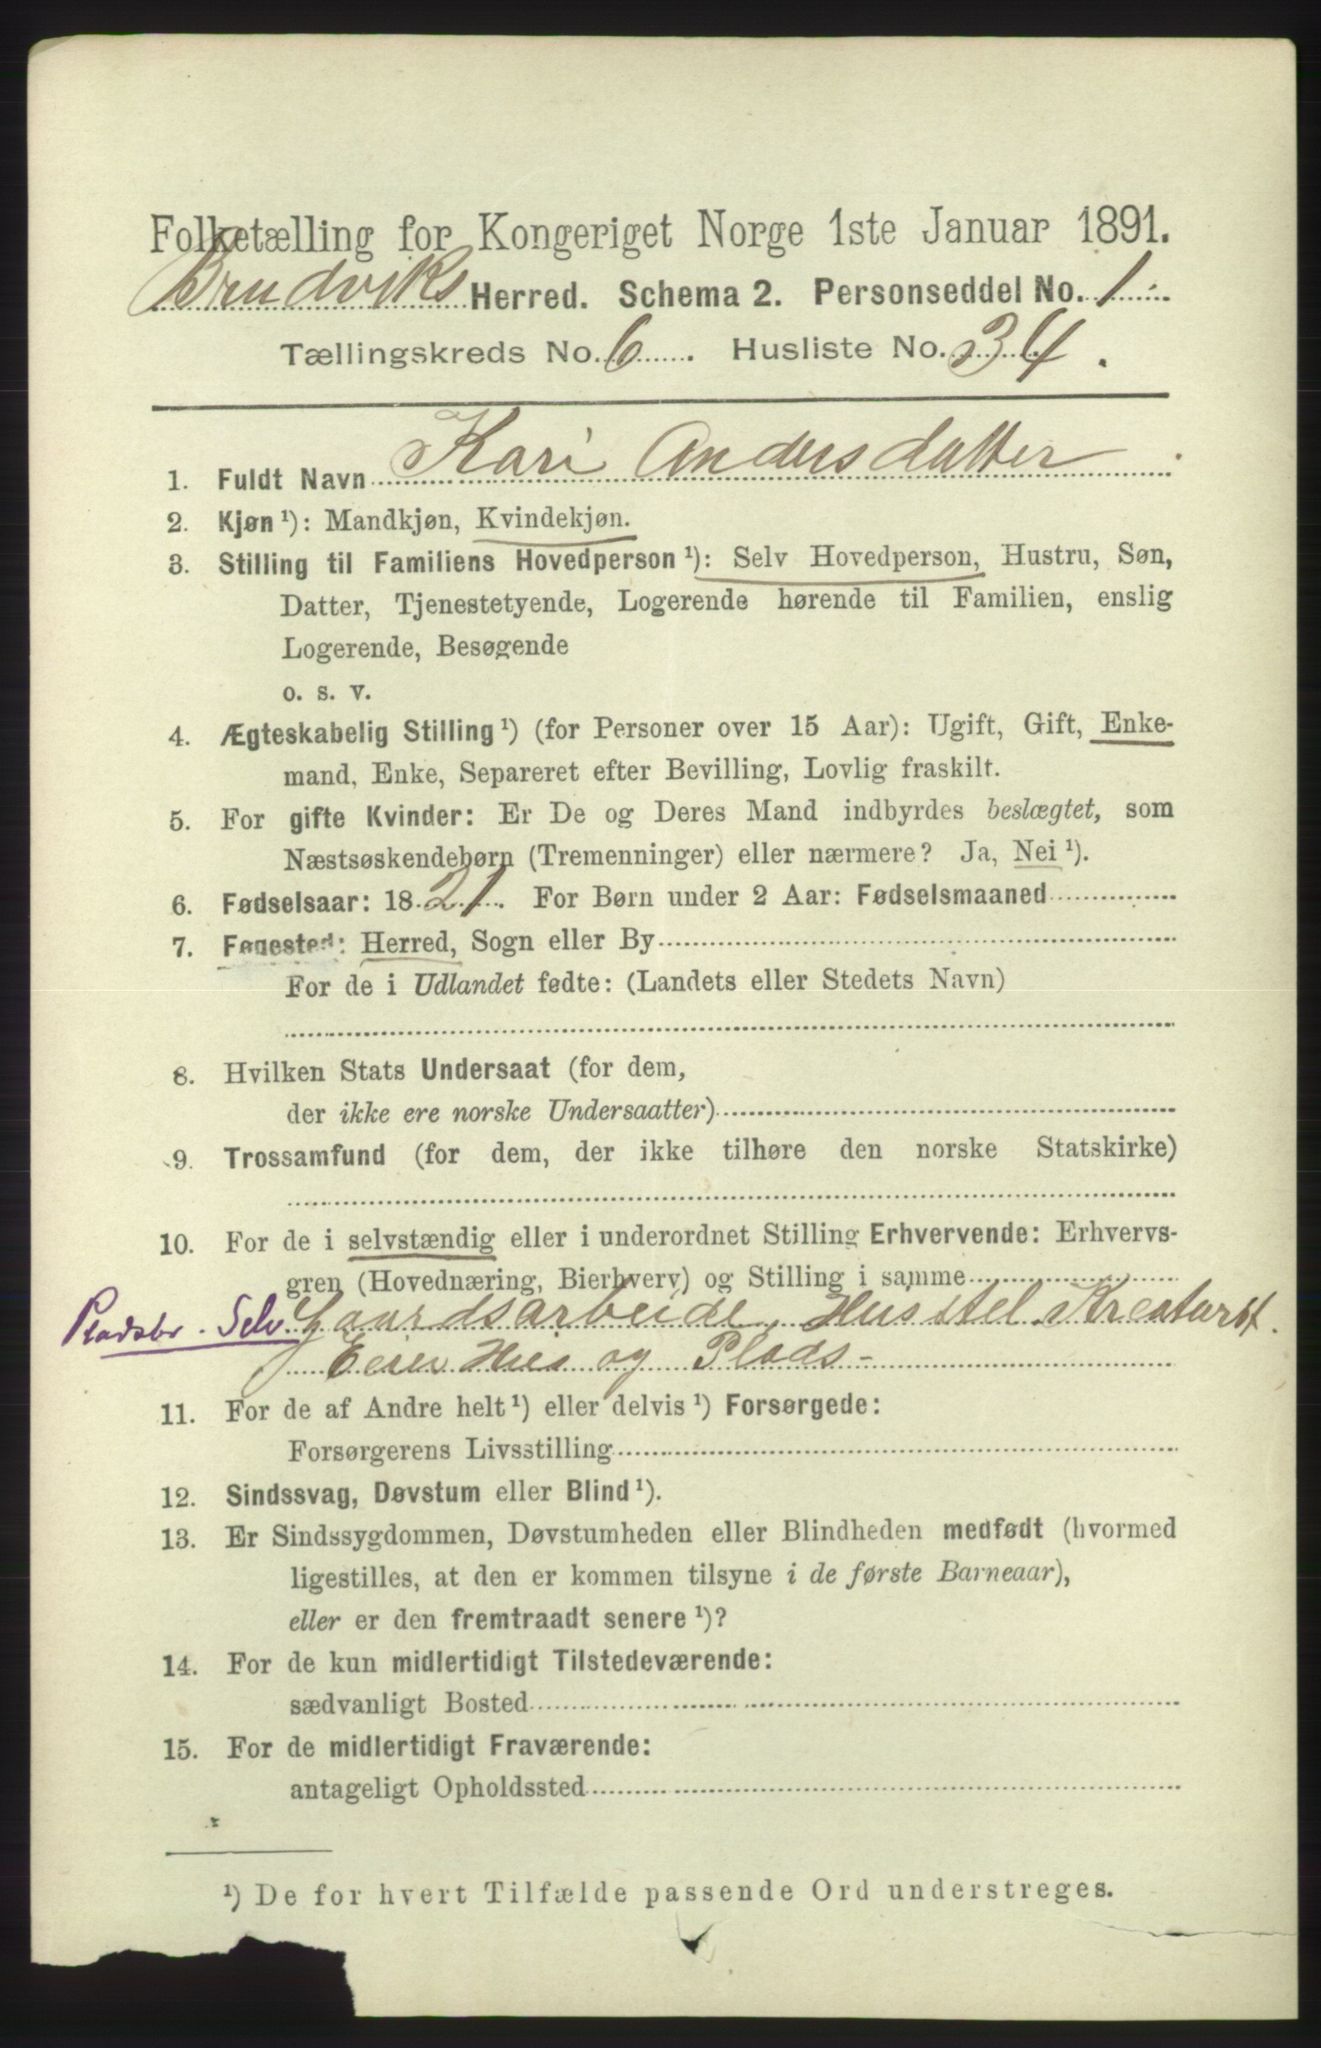 Folketælling for Kongeriget Norge 1ste Januar 1891.
Brudviks Herred. Schema 2. Personseddel No. 1.
Tællingskreds No. 6. Husliste No. 34.
1. Fuldt Navn Kari Andersdatter
2. Kjøn ¹): Mandkjøn, Kvindekjøn.
3. Stilling til Familiens Hovedperson ¹): Selv Hovedperson, Hustru, Søn,
Datter, Tjenestetyende, Logerende hørende til Familien, enslig
Logerende, Besøgende
o. s. v.
4. Ægteskabelig Stilling ¹) (for Personer over 15 Aar): Ugift, Gift, Enke-
mand, Enke, Separeret efter Bevilling, Lovlig fraskilt.
5. For gifte Kvinder: Er De og Deres Mand indbyrdes beslægtet, som
Næstsøskendebørn (Tremenninger) eller nærmere? Ja, Nei ¹).
6. Fødselsaar: 1821. For Børn under 2 Aar: Fødselsmaaned
7. Føgested: Herred, Sogn eller By
For de i Udlandet fødte: (Landets eller Stedets Navn)
8. Hvilken Stats Undersaat (for dem,
der ikke ere norske Undersaatter)
9. Trossamfund (for dem, der ikke tilhøre den norske Statskirke)
10. For de i selvstændig eller i underordnet Stilling Erhvervende: Erhvervs-
gren (Hovednæring, Bierhverv) og Stilling i samme
Pladsbr. Selv Gaardsarbeide, Husstel, Kreaturst.
Eier Hus og Plads-
11. For de af Andre helt ¹) eller delvis ¹) Forsørgede:
Forsørgerens Livsstilling
12. Sindssvag, Døvstum eller Blind ¹).
13. Er Sindssygdommen, Døvstumheden eller Blindheden medfødt (hvormed
ligestilles, at den er kommen tilsyne i de første Barneaar),
eller er den fremtraadt senere ¹)?
14. For de kun midlertidigt Tilstedeværende:
sædvanligt Bosted
15. For de midlertidigt Fraværende:
antageligt Opholdssted
¹) De for hvert Tilfælde passende Ord understreges.